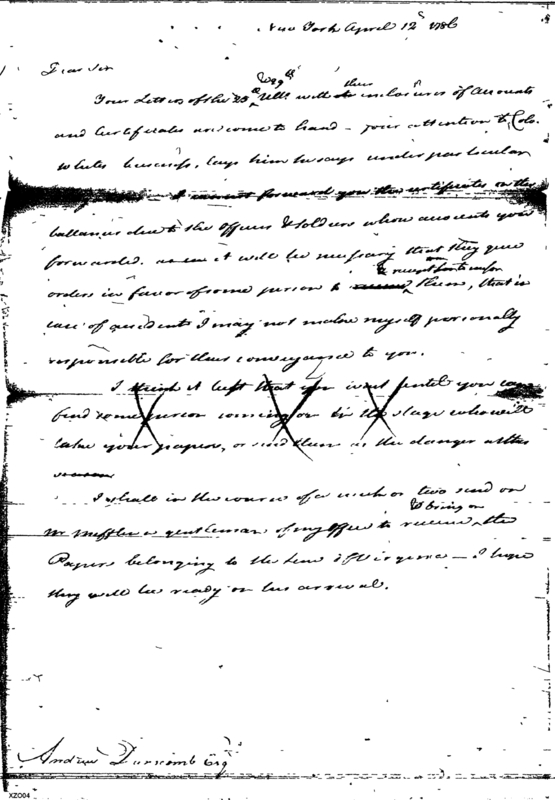 New York April 12th 1786
Dear Sir
Your Letters of the 29th Ulto with their inclosures of Accounts
and Certificates are come to hand – your attention to Colo.
Whites business, lays him he says under particular
I cannot forward you the certificates on the
ballances due to the officers & soldiers whose accounts you
forwarded. it will be necessary that they give
orders in favor of some person to & receipt for them, that in
case of accidents I may not make myself personally
responsible for their conveyance to you.
I think it best that you wait until you can
find some person coming on in the stage who will
take your papers, or send them as the danger
season
I shall in the course of a week or two send on
Mr a gentleman of my office to receive & bring on the
Papers belonging to the Line of Virginia – I hope
they will be ready on his arrival.
Andrew Dunscomb Esqr
XZO04